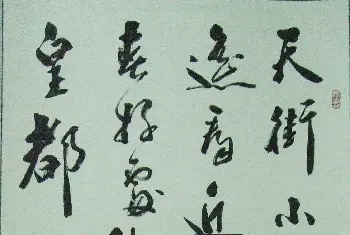 天街小
遥看近
春好处
皇都